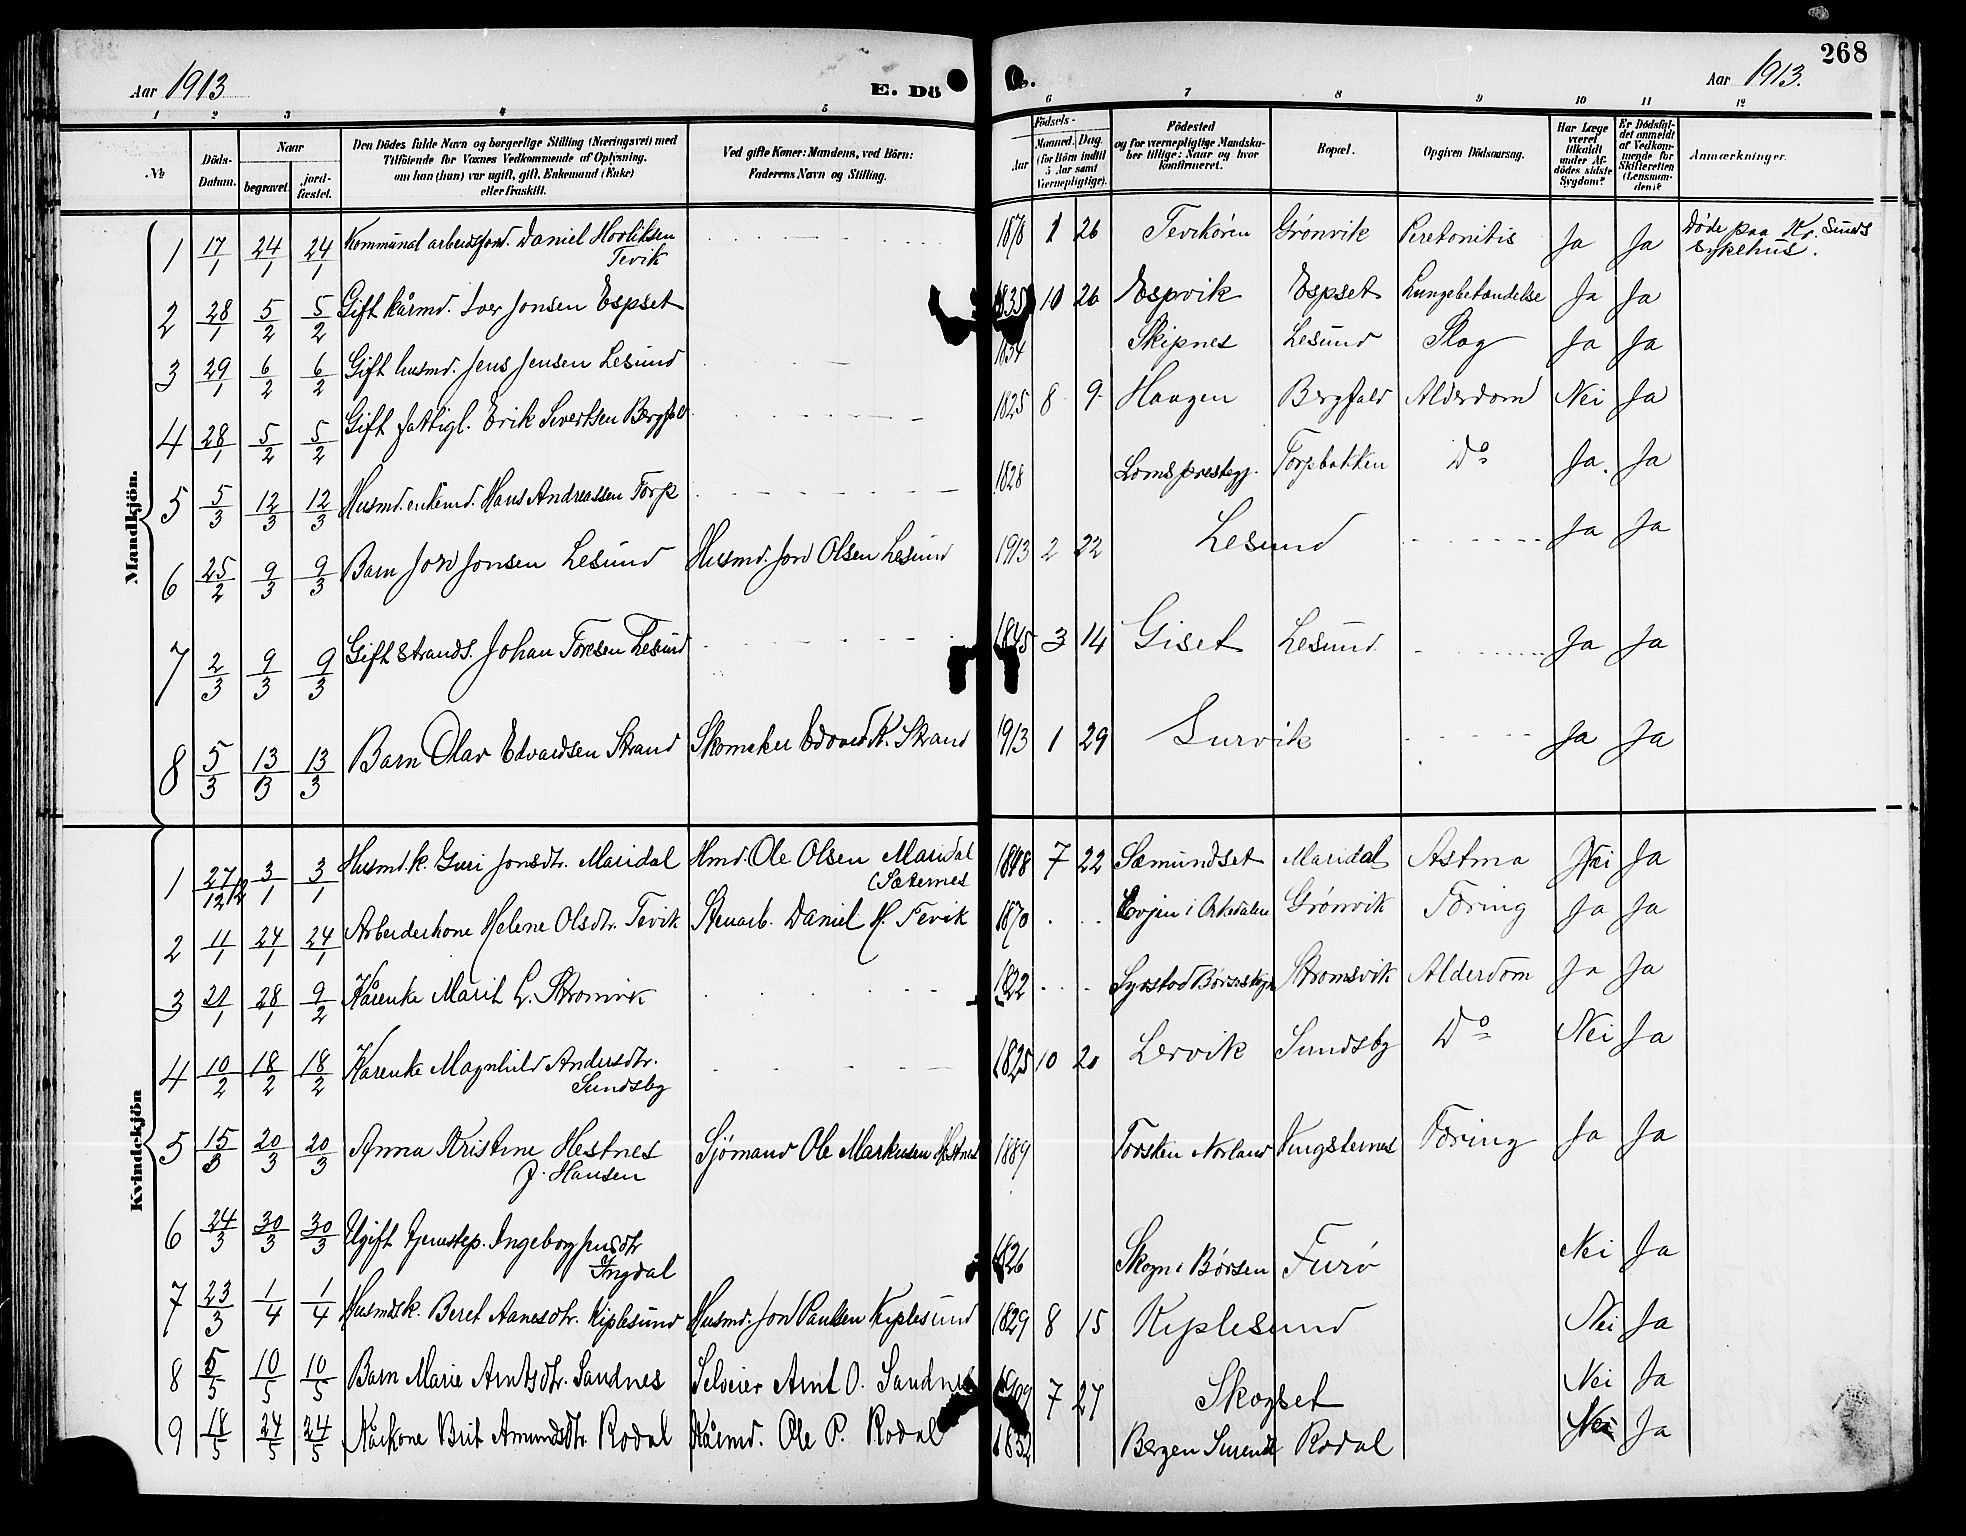 268
Aar 1913
E. Dö
Aar 1913.
1 2 3 4 5 6 7 8 9 10 11 12
№
Döds-Datum.
Naar
begravet.
jord-fæstet.
Den Dödes fulde Navn og borgerlige Stilling (Næringsvei) med
Tilföiende for Voxnes Vedkommende af Oplysning,
om han (hun) var ugift, gift, Enkemand (Enke)
eller fraskilt.
Ved gifte Koner: Mandens, ved Börn:
Faderens Navn og Stilling.
Födsels-
Aar
Maaned. Dag.
(for Börn indtil
5 Aar samt
Værnepligtige).
Födested
og for værnepligtige Mandska-
ber tillige: Naar og hvor
konfirmeret.
Bopæl.
Opgiven Dödsaarsag.
Har Læge
været
tilkaldt
under Af-
dödes sidste
Sygdom?
Er Dödsfal-
det anmeldt
af Vedkom-
mende for
Skifteretten
(Lensman-
den)?
Anmærkninger.
Mandkjön.
1 17/1 24/1 24/1 Kommunal arbeidsford. Daniel Tevik 1878 1 26 Grønvik Peretonitis Ja Ja Døde paa Kr. Sunds
sykehus.
2 28/1 5/2 5/2 Gift kårmd. Iver Jonsen Espset 1835 10 26 Espvik Espset Lungebetændelse Ja Ja
3 29/1 6/2 6/2 Gift husmd. Jens Jensen Lesund 1834 Skipnes Lesund Slag Ja Ja
4 28/1 5/2 5/2 Gift fattigl. Erik Sivertsen Bergfald 1825 8 9 Haagen Bergfald Alderdom Nei Ja
5 5/3 12/3 12/3 Husmd. enkemd. Hans Andreassen Torp 1828 Loms prestegj. Torpbakken Do Ja. Ja
6 25/2 9/3 9/3 Barn Jon Jonsen Lesund Husmd. Jon Olsen Lesund 1913 2 22 Lesund Ja Ja
7 2/3 9/3 9/3 Gift strands. Johan Toresen Lesund 1845 3 14 Giset Lesund Ja Ja
8 5/3 13/3 13/3 Barn Olav Edvardsen Strand Skomaker Edvard K. Strand 1913 1 29 Survik Ja Ja
Kvindekjön
1 27/12 12 3/1 3/1 Husmd.k. Guri Jonsdtr. Maridal Hmd. Ole Olsen Maridal
(Sæternes 1848 7 22 Sæmundset Maridal Astma Nei Ja
2 11/1 24/1 24/1 Arbeiderkone Helene Olsdtr. Tevik Stenarb. Daniel H. Tevik 1870 Evjen i Orkedalen Grønvik Tæring Ja Ja
3 21/1 28/1 9/2 Kårenke Marit L. Strømsvik 1822 Strømsvik Alderdom Ja Ja
4 10/2 18/2 18/2 Kårenke Magnhild Andersdtr.
Sundsby 1825 10 20 Lervik Sundsby Do Nei Ja
5 15/3 20/3 20/3 Anna Kristine Hestnes
f. Hansen Sjömand Ole Markusen Hestnes 1889 Torsken Norland Kungsternes Tæring Ja Ja
6 24/3 30/3 30/3 Ugift tjenestep. Ingeborg
Yngdal 1826 Skogn i Børsen Furø Nei Ja
7 23/3 1/4 1/4 Husmdsk. Beret Aanesdtr. Kiplesund Husmd. Jon Paulsen Kyplesund 1829 8 15 Kyplesund Nei Ja
8 5/5 10/5 10/5 Barn Marie Arntsdtr. Sandnes Selveier Arnt O. Sandnes 1909 7 27 Skogset Nei Ja
9 18/5 24/5 24/5 Kårkone Brit Amundsdtr. Rodal Kårmd. Ole P. Rodal 1832 Bergen Surendl Rodal Nei Ja